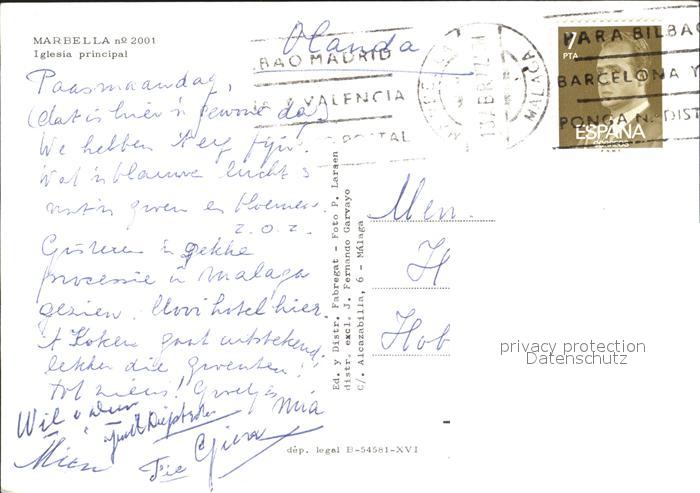 MARBELLA nº 2001
Iglesia principal
Olanda
BAO MADRID
VALENCIA
POSTAL
MALAGA
7
PTA
ESPAÑA
CORREOS
PARA BILBAO
BARCELONA Y
PONGA N. DIST
Paasmaandag,
(dat is hier 'n gewone dag)
We hebben 't erg fijn!
Wat 'n blauwe lucht &
wat 'n groen en bloemen.
z.o.z.
Gisteren 'n gekke
processie in malaga
gezien. Mooi hotel hier.
't Koken gaat uitstekend,
lekker die groenten!
tot ziens! Groetjes
mia
Wil
Mien
Fie
Men.
H
Hob
Ed. y Distr. Fabregat - Foto P. Larsen
distr. excl. J. Fernando Garvayo
C/. Alcazabilla, 6 - Málaga
privacy protection
Datenschutz
dép. legal B-54581-XVI